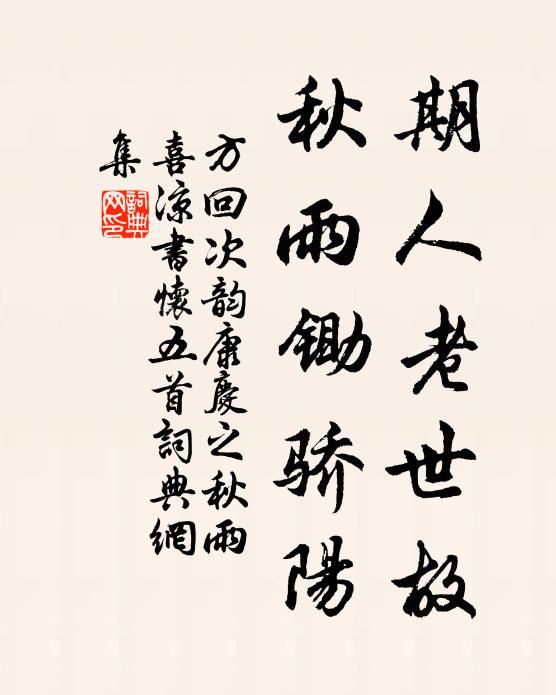 期人老世故
秋雨锄骄陽
方回次韵康慶之秋雨
喜凉書懷五首詞典網
集
詞典
网印